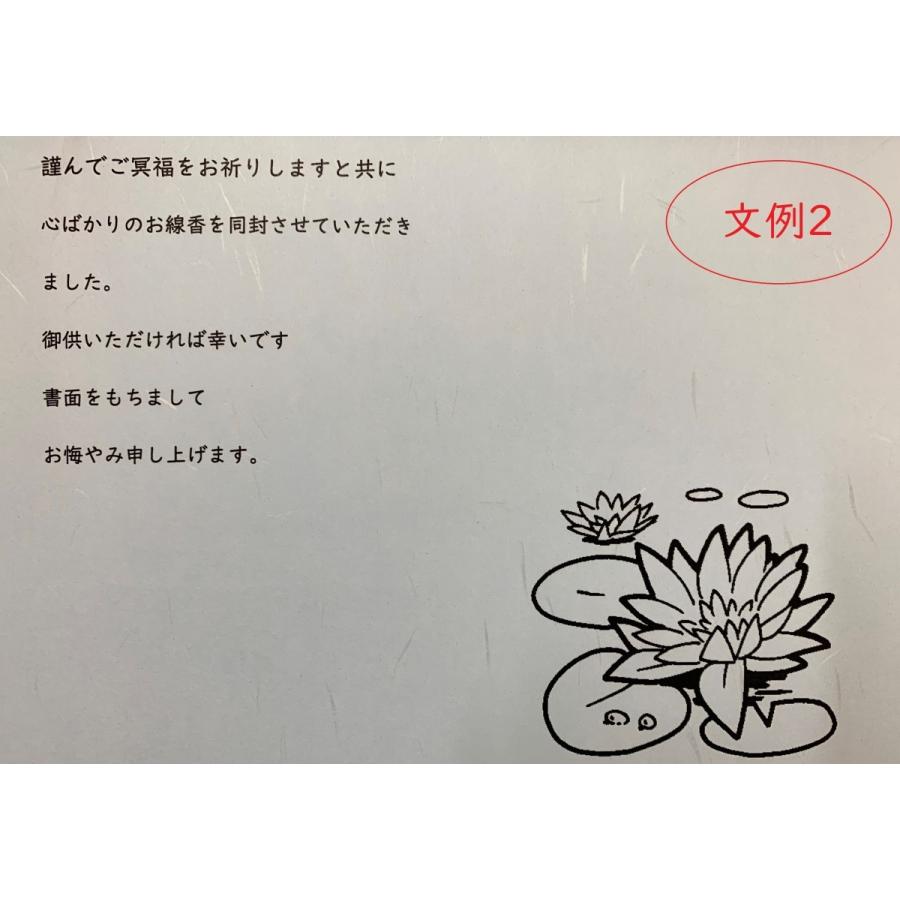 謹んでご冥福をお祈りしますと共に
心ばかりのお線香を同封させていただき
ました。
御供いただければ幸いです
書面をもちまして
お悔やみ申し上げます。
文例2